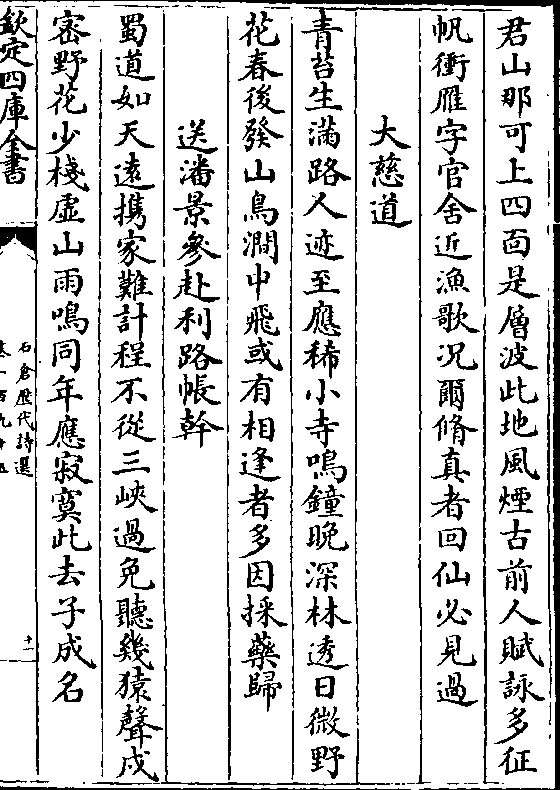 君山那可上四面是層波此地風煙古前人賦詠多征
帆衝雁字官舍近漁歌况爾脩真者回仙必見過
大慈道
青苔生滿路人迹至應稀小寺鳴鐘晚深林透日微野
花春後發山鳥澗中飛或有相逢者多因採藥歸
送潘景參赴利路帳幹
蜀道如天遠携家難計程不從三峽過免聽幾猿聲戍
密野花少棧虛山雨鳴同年應寂寞此去子成名
欽定四庫全書
石倉歷代詩選
十一